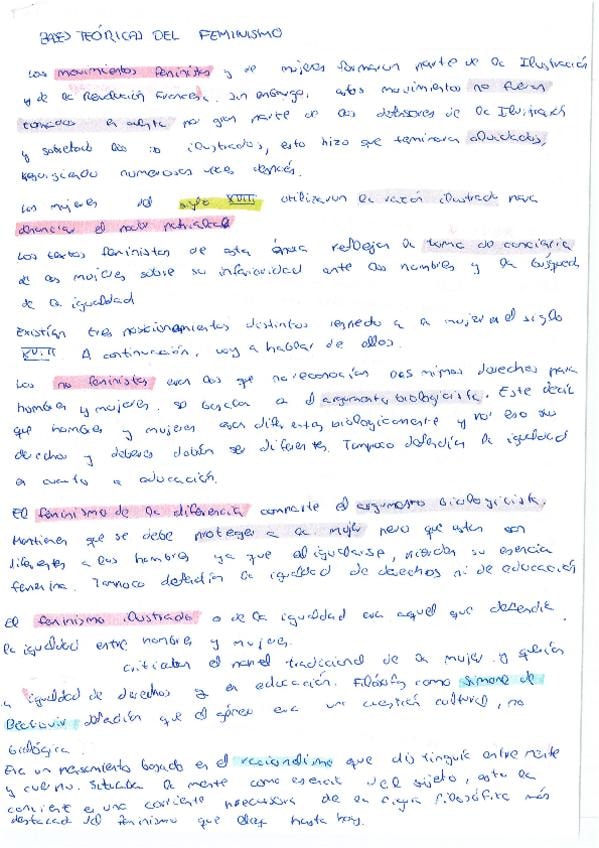 BASES TEÓRICAS DEL FEMINISMO
Los movimientos feministas y de mujeres formaron parte de la Ilustración
y de la Revolución Francesa. Sin embargo, estos movimientos no fueron
tomados en cuenta por gran parte de los defensores de la Ilustración
y sobretodo los no ilustrados, esto hizo que terminara olvidados,
resurgiendo numerosas veces después.
Las mujeres del siglo XVIII utilizaron la razón ilustrada para
denunciar el poder patriarcal
Los textos feministas de esta época reflejan la toma de conciencia
de las mujeres sobre su inferioridad ante los hombres y la búsqueda
de la igualdad
Existían tres posicionamientos distintos respecto a la mujer en el siglo
XVIII. A continuación, voy a hablar de ellos.
Los no feministas eran los que no reconocían los mismos derechos para
hombres y mujeres. Se basaban en el argumento biologicista. Este decía
que hombres y mujeres eran diferentes biológicamente y por eso sus
derechos y deberes debían ser diferentes. Tampoco defendían la igualdad
en cuanto a educación.
El feminismo de la diferencia comparte el argumento biologicista.
Mantienen que se debe proteger a la mujer pero que estas son
diferentes a los hombres ya que al igualarse, perderían su esencia
femenina. Tampoco defendían la igualdad de derechos ni de educación
El feminismo ilustrado o de la igualdad era aquel que defendía
la igualdad entre hombres y mujeres.
criticaban el papel tradicional de la mujer y querían
igualdad de derechos y en educación. Filósofas como Simone de
Beauvoir defendían que el género era una cuestión cultural, no
biológica.
Era un pensamiento basado en el racionalismo que distinguía entre mente
y cuerpo. Situaba la mente como esencia del sujeto, esto la
convierte en una corriente precursora de la filosófica más
destacada del feminismo que hay hasta hoy.